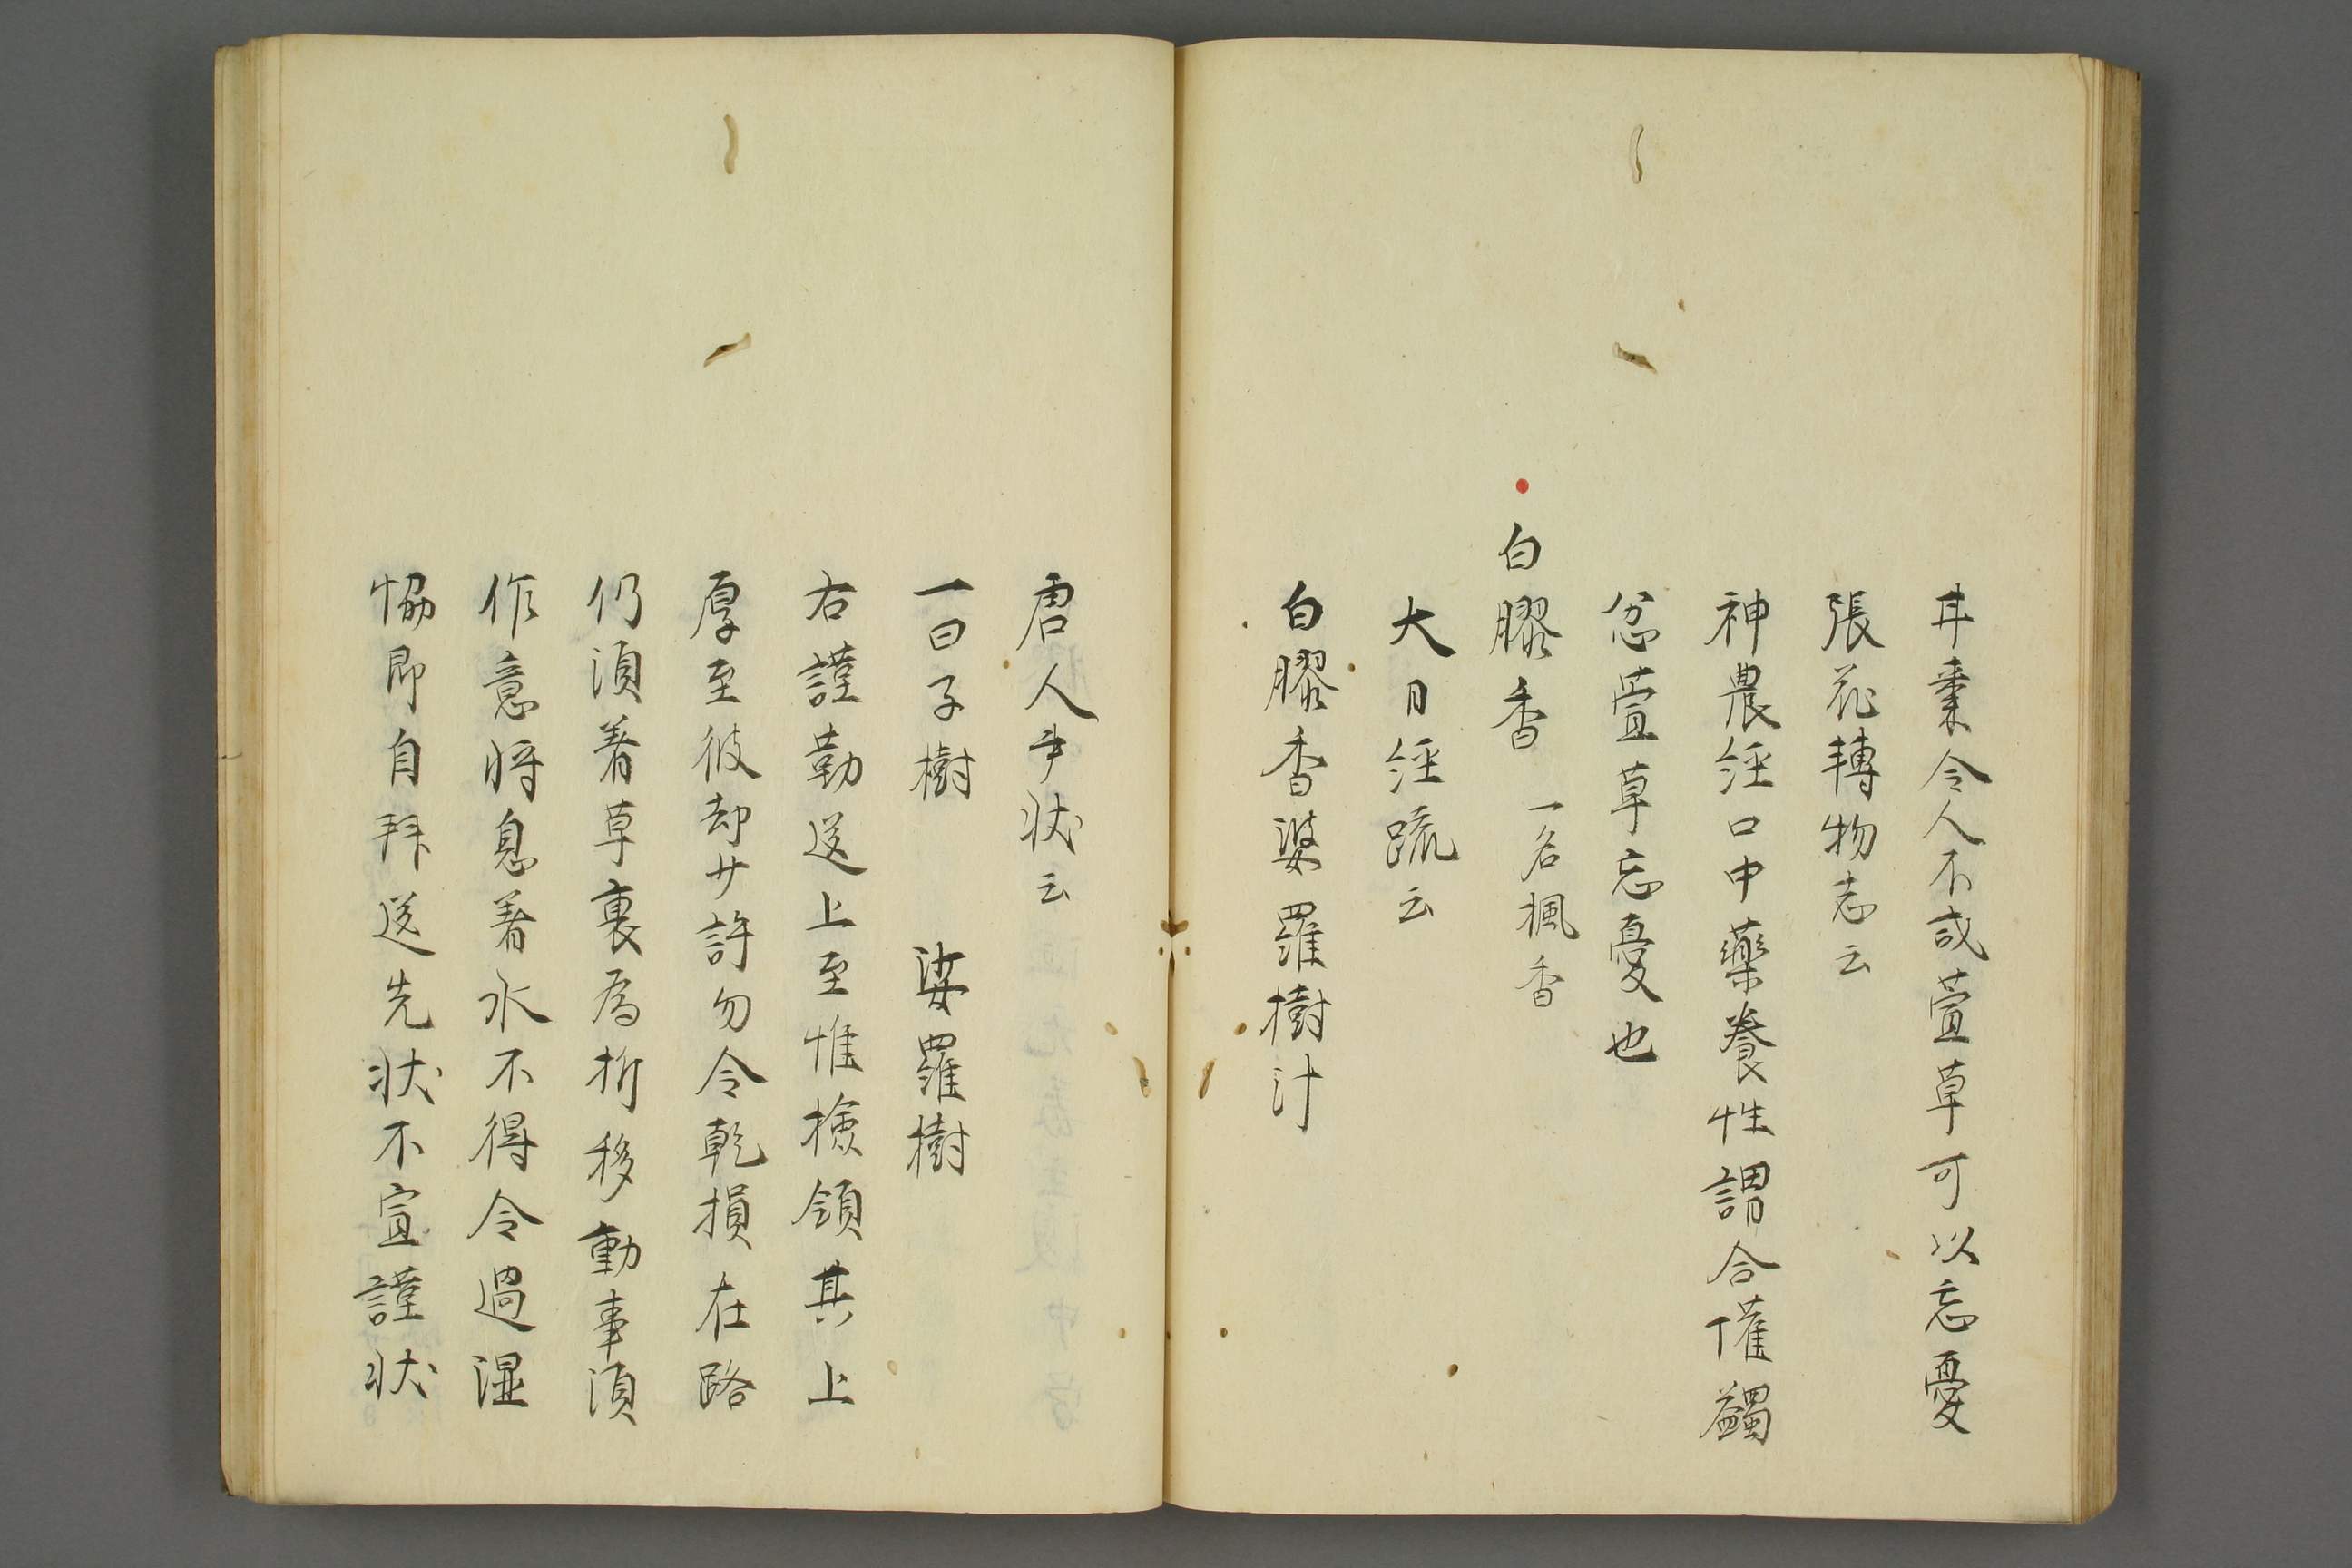 井棗令人不或萱草可以忘憂
張花轉物志云
神農経口中藥養性謂合㦜蠲
忿萱草忘憂也
白膠香 一名楓香
大日経疏云
白膠香娑羅樹汁
唐人手状云
一曰子樹 娑羅樹
右謹勒送上至惟検領其上
厚至彼却廾許勿令乾損在路
仍湏着草裏為折移動事湏
作意将息着水不得令過湿
恊即自拜送先状不宣謹状